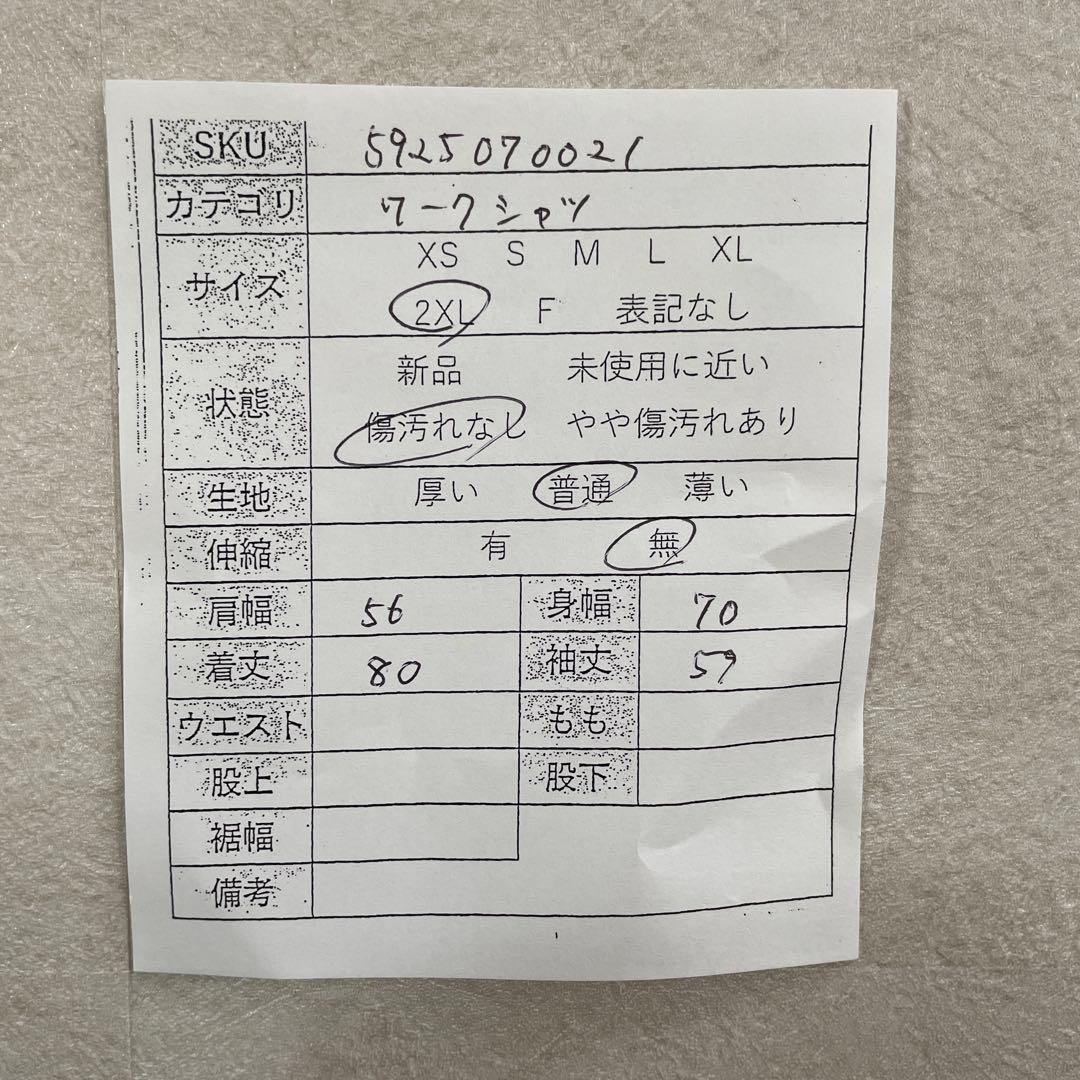 SKU 5925070021
カテゴリ ワークシャツ
XS S M L XL
サイズ
2XL F 表記なし
新品 未使用に近い
状態
傷汚れなし やや傷汚れあり
生地 厚い 普通 薄い
伸縮 有 無
肩幅 56 身幅 70
着丈 80 袖丈 59
ウエスト もも
股上 股下
裾幅
備考